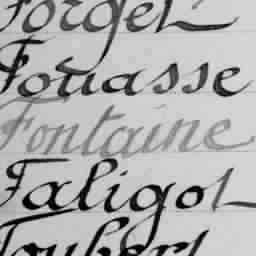 Forget
Fouasse
Fontaine
Faligot
Foubert